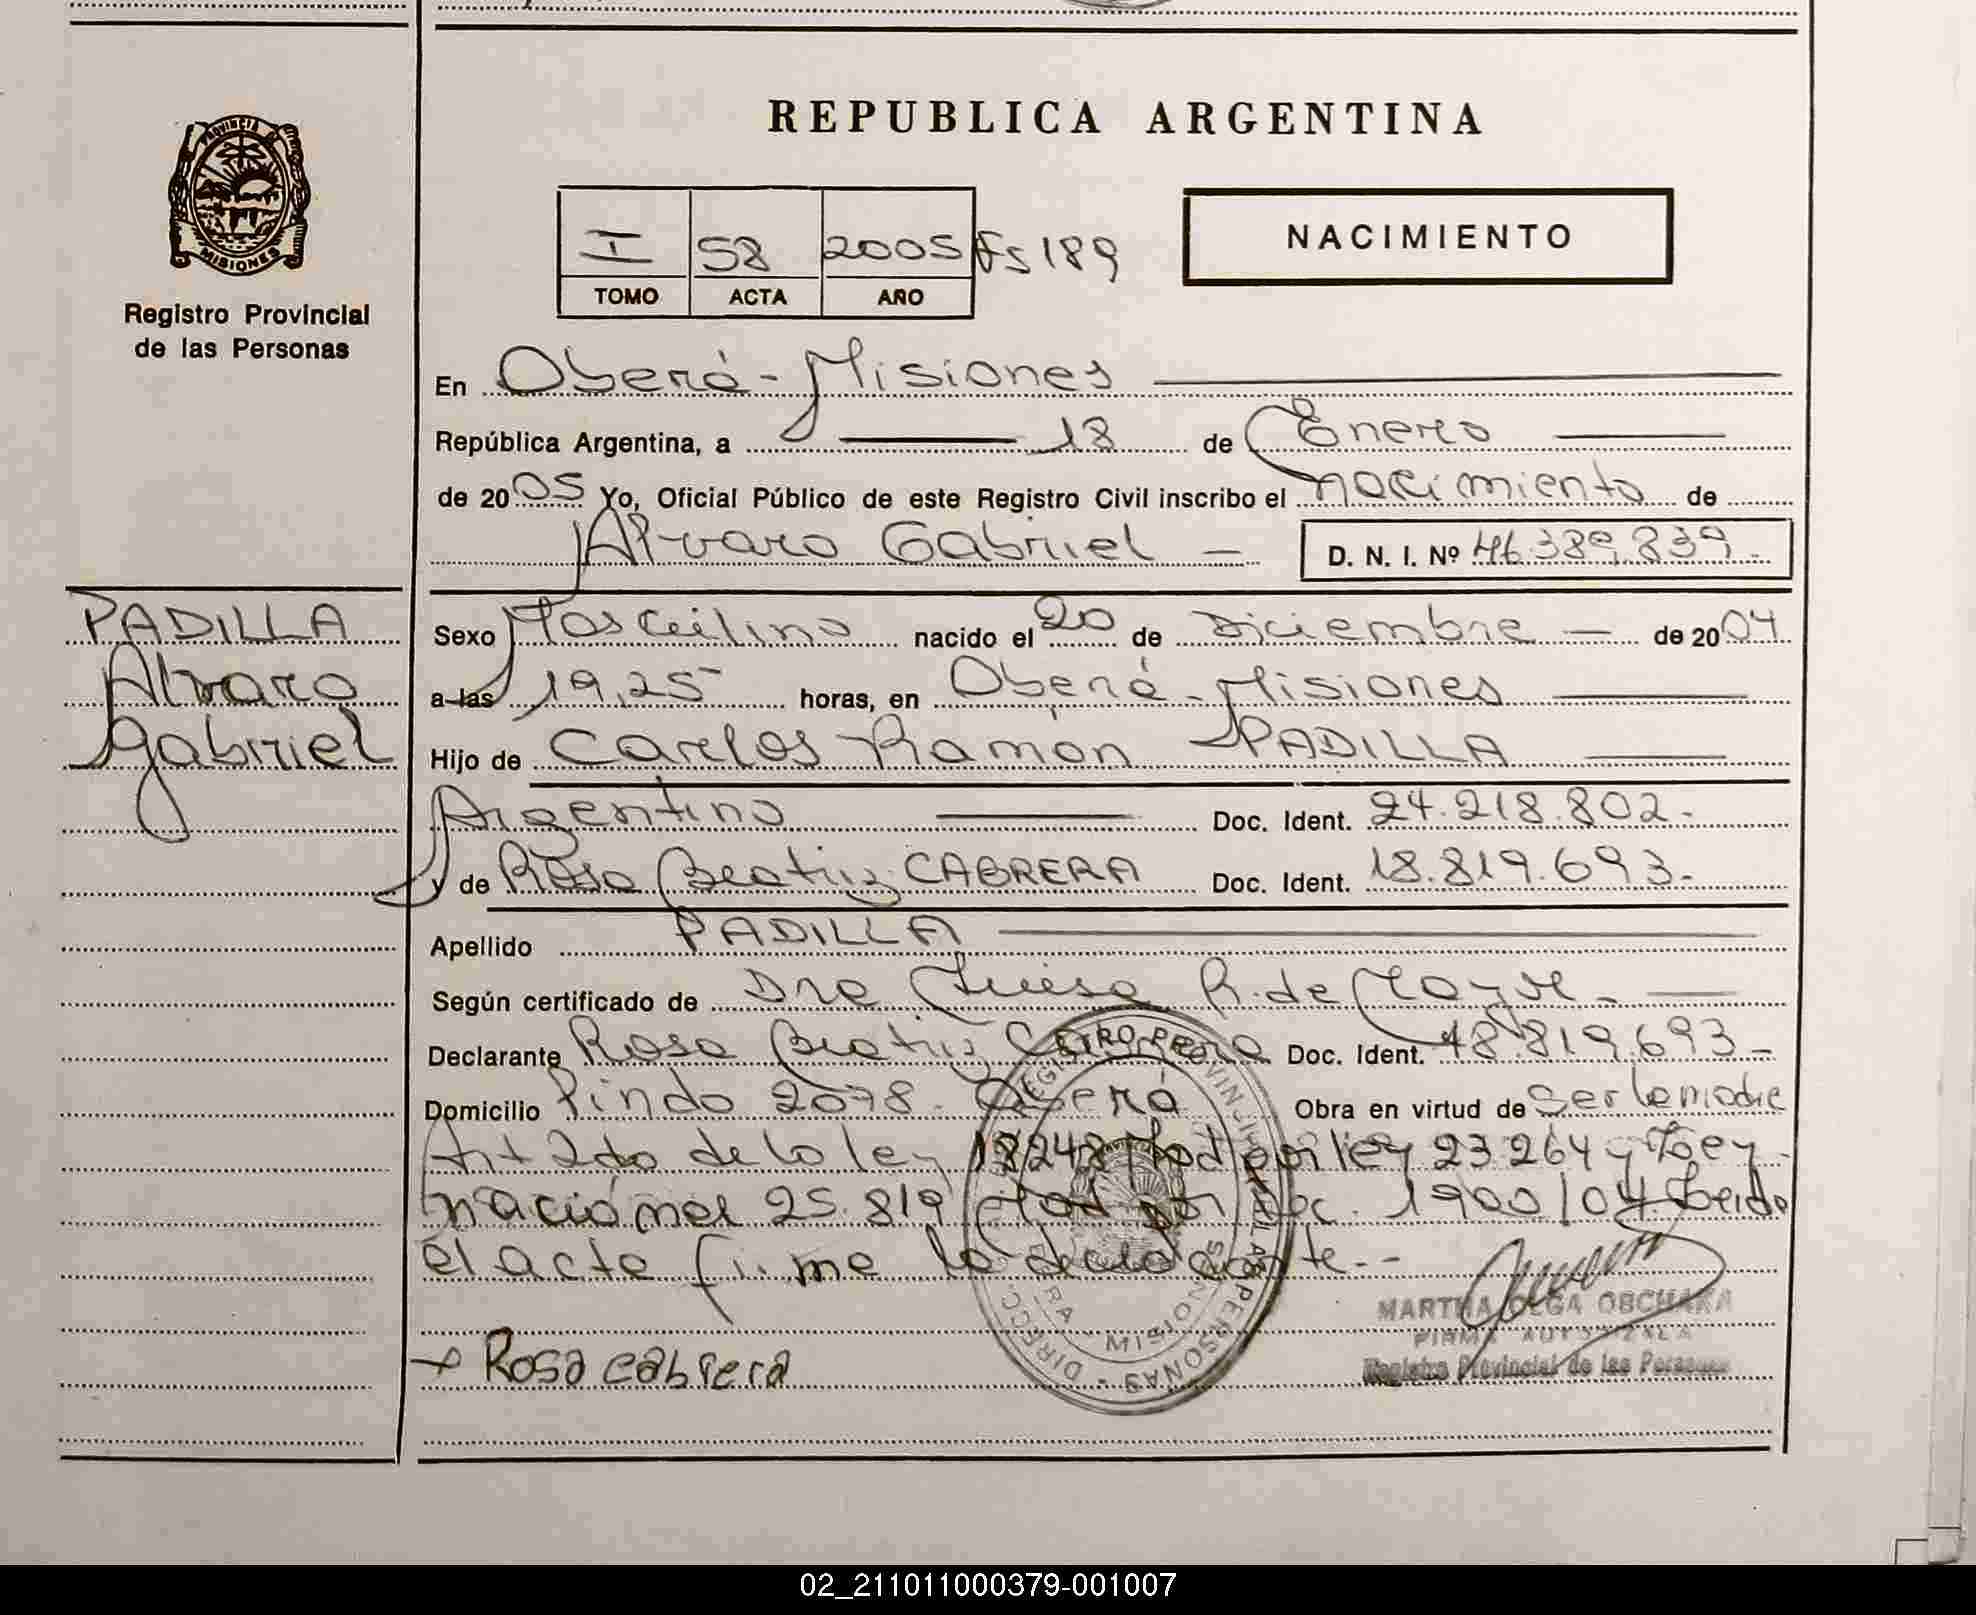 REPUBLICA ARGENTINA
PROVINCIA
MISIONES
Registro Provincial
de las Personas
I 58 2005 Fs 189
TOMO ACTA AÑO
NACIMIENTO
En Oberá - Misiones
República Argentina, a 18 de Enero
de 2005 Yo, Oficial Público de este Registro Civil inscribo el nacimiento de
Alvaro Gabriel D. N. I. Nº 46.389.839.-
PADILLA
Alvaro
Gabriel
Sexo Masculino nacido el 20 de Diciembre de 2004
a las 19,25 horas, en Oberá - Misiones
Hijo de Carlos Ramón PADILLA
Argentino Doc. Ident. 24.218.802.-
y de Rosa Beatriz CABRERA Doc. Ident. 18.819.693.-
Apellido PADILLA
Según certificado de Dra Luisa R. de
Declarante Rosa Beatriz Cabrera Doc. Ident. 18.819.693-
Domicilio Pindo 2078. Oberá Obra en virtud de Ser la madre
Art 2do de la ley 18248 Mod por ley 23264 y Ley
nacional 25.819 Mod por Dec. 1900/04. Leido
el acta firma la declarante.-
MARTHA OLGA OBCHARA
FIRMA AUTORIZADA
Registro Provincial de las Personas
Rosa cabrera
02_211011000379-001007